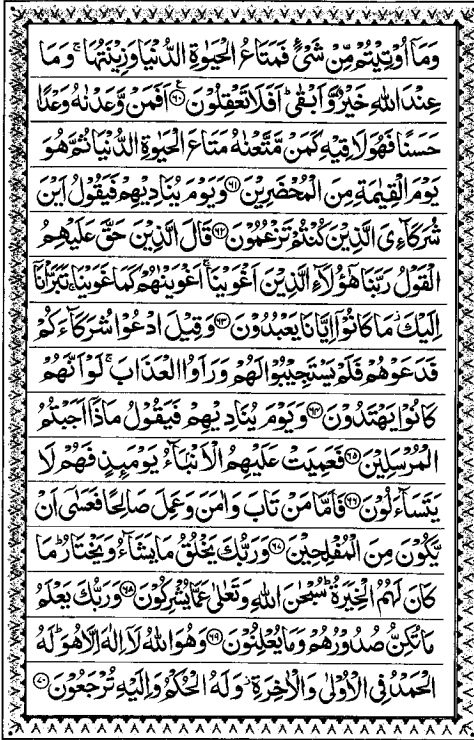 وَمَآ اُوْتِيْتُمْ مِّنْ شَيْءٍ فَمَتَاعُ الْحَيٰوةِ الدُّنْيَا وَزِيْنَتُهَا ۚ وَمَا
عِنْدَ اللّٰهِ خَيْرٌ وَّاَبْقٰى ؕ اَفَلَا تَعْقِلُوْنَ ﴿٦٠﴾ ع اَفَمَنْ وَّعَدْنٰهُ وَعْدًا
حَسَنًا فَهُوَ لَاقِيْهِ كَمَنْ مَّتَّعْنٰهُ مَتَاعَ الْحَيٰوةِ الدُّنْيَا ثُمَّ هُوَ
يَوْمَ الْقِيٰمَةِ مِنَ الْمُحْضَرِيْنَ ﴿٦١﴾ وَيَوْمَ يُنَادِيْهِمْ فَيَقُوْلُ اَيْنَ
شُرَكَآءِيَ الَّذِيْنَ كُنْتُمْ تَزْعُمُوْنَ ﴿٦٢﴾ قَالَ الَّذِيْنَ حَقَّ عَلَيْهِمُ
الْقَوْلُ رَبَّنَا هٰٓؤُلَآءِ الَّذِيْنَ اَغْوَيْنَا ۚ اَغْوَيْنٰهُمْ كَمَا غَوَيْنَا ۚ تَبَرَّاْنَآ
اِلَيْكَ ؗ مَا كَانُوْٓا اِيَّانَا يَعْبُدُوْنَ ﴿٦٣﴾ وَقِيْلَ ادْعُوْا شُرَكَآءَكُمْ
فَدَعَوْهُمْ فَلَمْ يَسْتَجِيْبُوْا لَهُمْ وَرَاَوُا الْعَذَابَ ۚ لَوْ اَنَّهُمْ
كَانُوْا يَهْتَدُوْنَ ﴿٦٤﴾ وَيَوْمَ يُنَادِيْهِمْ فَيَقُوْلُ مَاذَآ اَجَبْتُمُ
الْمُرْسَلِيْنَ ﴿٦٥﴾ فَعَمِيَتْ عَلَيْهِمُ الْاَنْۢبَآءُ يَوْمَئِذٍ فَهُمْ لَا
يَتَسَآءَلُوْنَ ﴿٦٦﴾ فَاَمَّا مَنْ تَابَ وَاٰمَنَ وَعَمِلَ صَالِحًا فَعَسٰٓى اَنْ
يَّكُوْنَ مِنَ الْمُفْلِحِيْنَ ﴿٦٧﴾ وَرَبُّكَ يَخْلُقُ مَا يَشَآءُ وَيَخْتَارُ ؕ مَا
كَانَ لَهُمُ الْخِيَرَةُ ؕ سُبْحٰنَ اللّٰهِ وَتَعٰلٰى عَمَّا يُشْرِكُوْنَ ﴿٦٨﴾ وَرَبُّكَ يَعْلَمُ
مَا تُكِنُّ صُدُوْرُهُمْ وَمَا يُعْلِنُوْنَ ﴿٦٩﴾ وَهُوَ اللّٰهُ لَآ اِلٰهَ اِلَّا هُوَ ؕ لَهُ
الْحَمْدُ فِي الْاُوْلٰى وَالْاٰخِرَةِ ؗ وَلَهُ الْحُكْمُ وَاِلَيْهِ تُرْجَعُوْنَ ﴿٧٠﴾